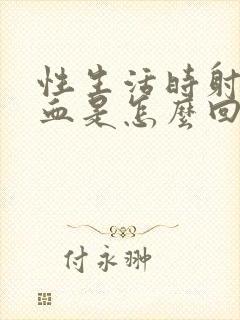 性生活時射
血是怎麼回
付永翀